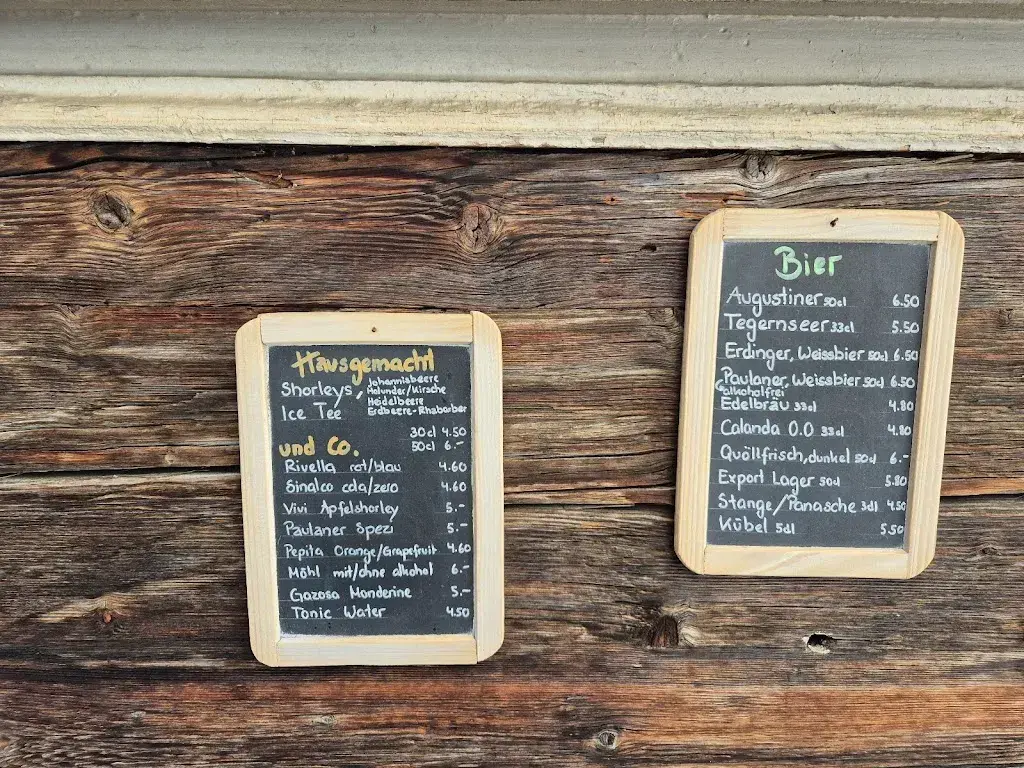 Hausgemacht
Shorleys, Johannisbeere
Holunder/Kirsche
Heidelbeere
Ice Tee Erdbeere-Rhabarber
30cl 4.50
50cl 6.-
und Co.
Rivella rot/blau 4.60
Sinalco cola/zero 4.60
Vivi Apfelshorley 5.-
Paulaner Spezi 5.-
Pepita Orange/Grapefruit 4.60
Möhl mit/ohne alkohol 6.-
Gazosa Manderine 5.-
Tonic Water 4.50
Bier
Augustiner 50cl 6.50
Tegernseer 33cl 5.50
Erdinger, Weissbier 50cl 6.50
Paulaner, Weissbier 50cl 6.50
alkoholfrei
Edelbräu 33cl 4.80
Calanda 0.0 33cl 4.80
Quöllfrisch, dunkel 50cl 6.-
Export Lager 50cl 5.80
Stange/Panasche 3dl 4.50
Kübel 5dl 5.50